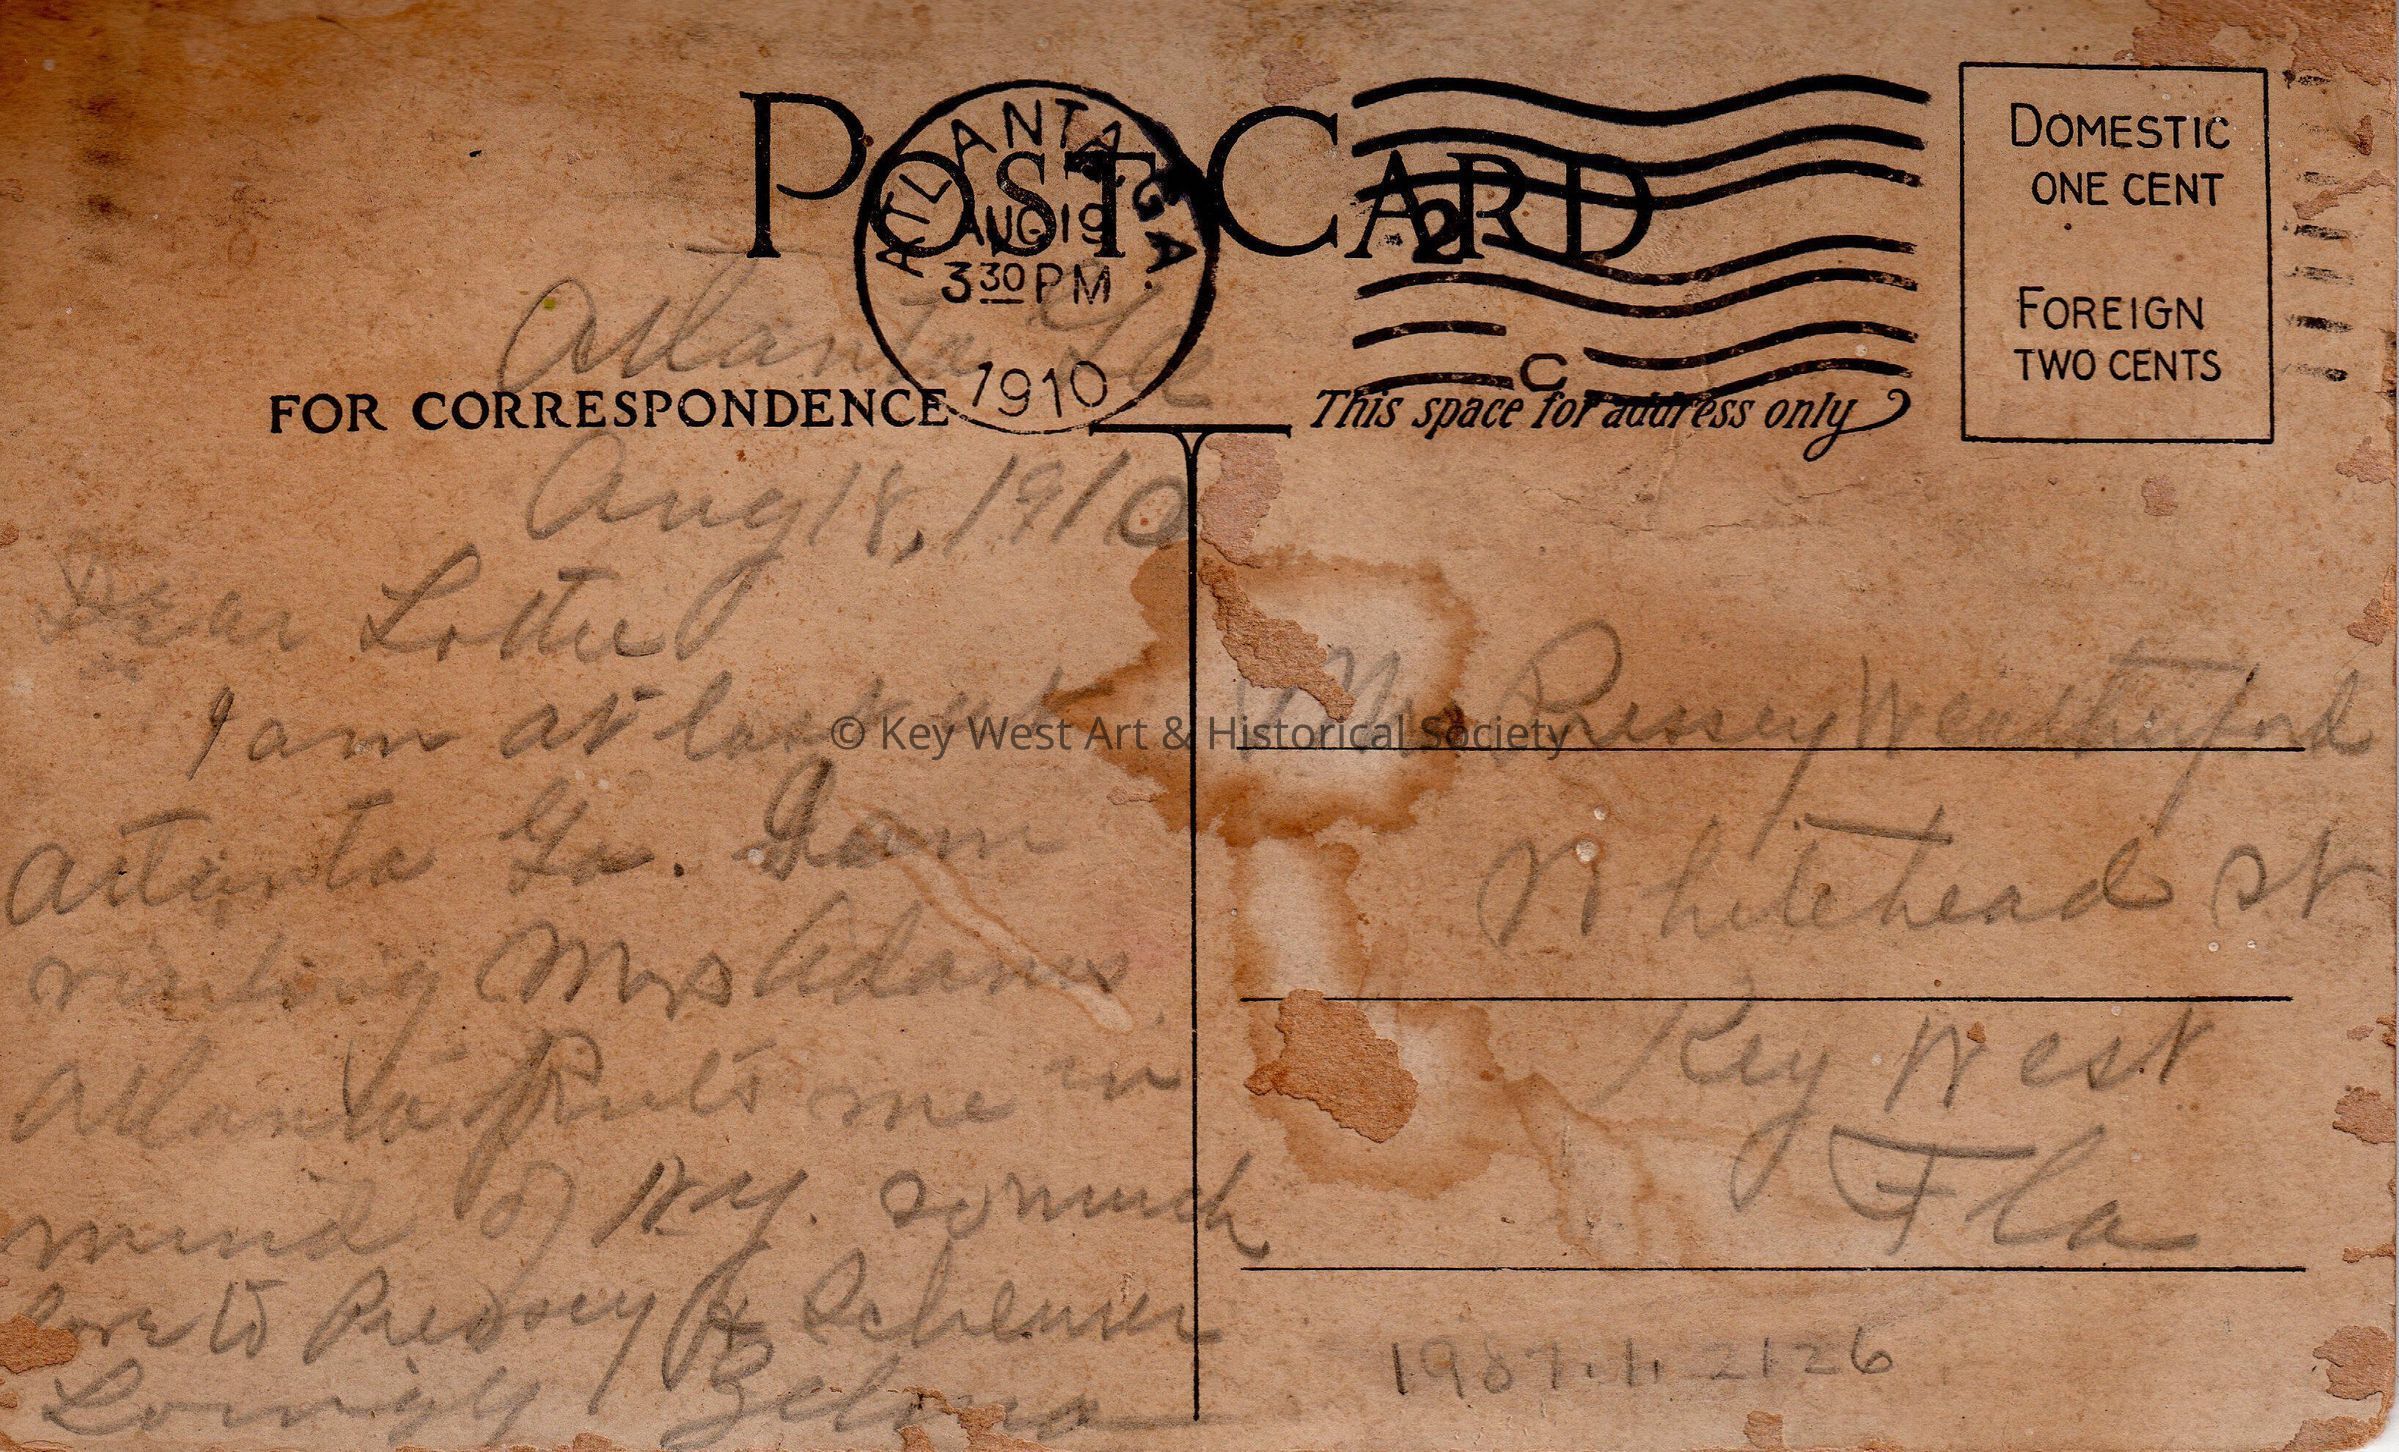 POST CARD
ATLANTA, GA.
AUG 19
3 30 PM
1910
2
C
DOMESTIC
ONE CENT
FOREIGN
TWO CENTS
FOR CORRESPONDENCE
This space for address only
Atlanta Ga
Aug 18, 1910
Dear Lottie
I am at last at
Atlanta Ga. I am
visiting Mrs Adams
Atlanta Puts me in
mind of N.Y. so much
love to Pressey &
Lovingly Zelma
Pressey Weatherford
Whitehead St
Key West
Fla
1987.1.2126
© Key West Art & Historical Society